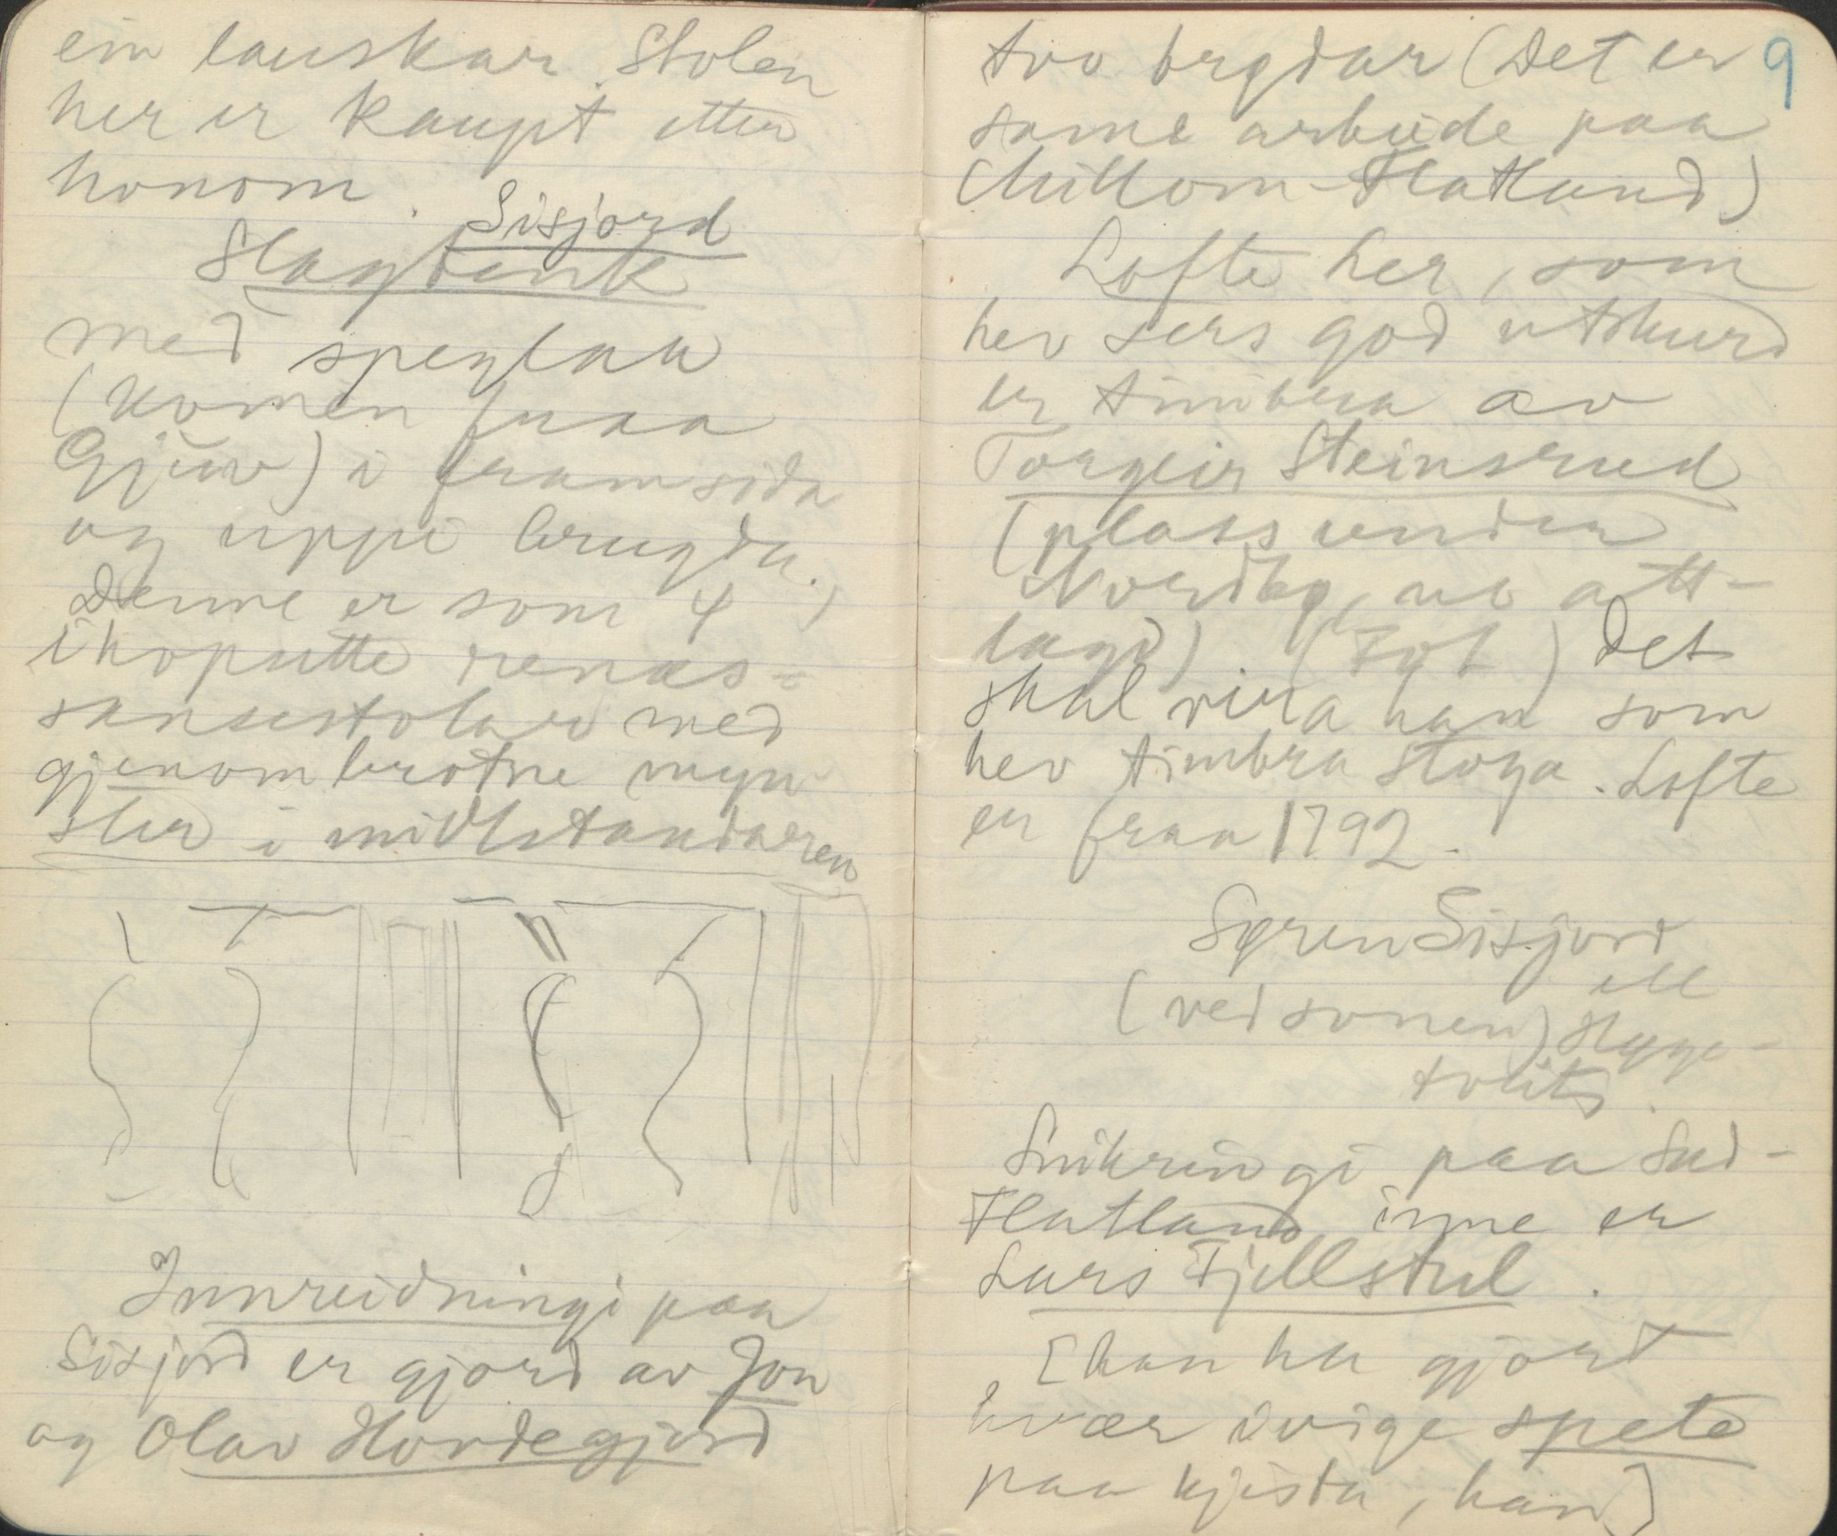 ein lauskar. Stolen
her er kaupt etter
honom.
Sisjord
Slagbenk
med speglar
(komen fraa
Gjuv) i framsida
og uppi brugda.
Denne er som 4
ihopsette renæs-
sansestolar med
gjenombrotne myn-
ster i midtstandaren
Innreidningi paa
Sisjord er gjord av Jon
og Olav Hovdegjord
9
tvo brydar (Det er
same arbeide paa
Millom-Flatland)
Lofte her, som
hev sers god utskurd
er timbra av
Torgeir Steinsrud
(plass under
Nordbø, no att-
lagd). (Fyl) Det
skal vera han som
hev timbra stoga. Lofte
er fraa 1792.
Syren Sisjord
(ved sonen)
Hyge-
tveit.
Snikringi paa Sud-
Flatland inne er
Lars Fjellstul.
[han ha gjort
hvær ivige spete
paa kjista, han]